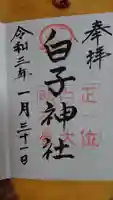 奉拝
正一位
白子神社
令和三年一月三十一日